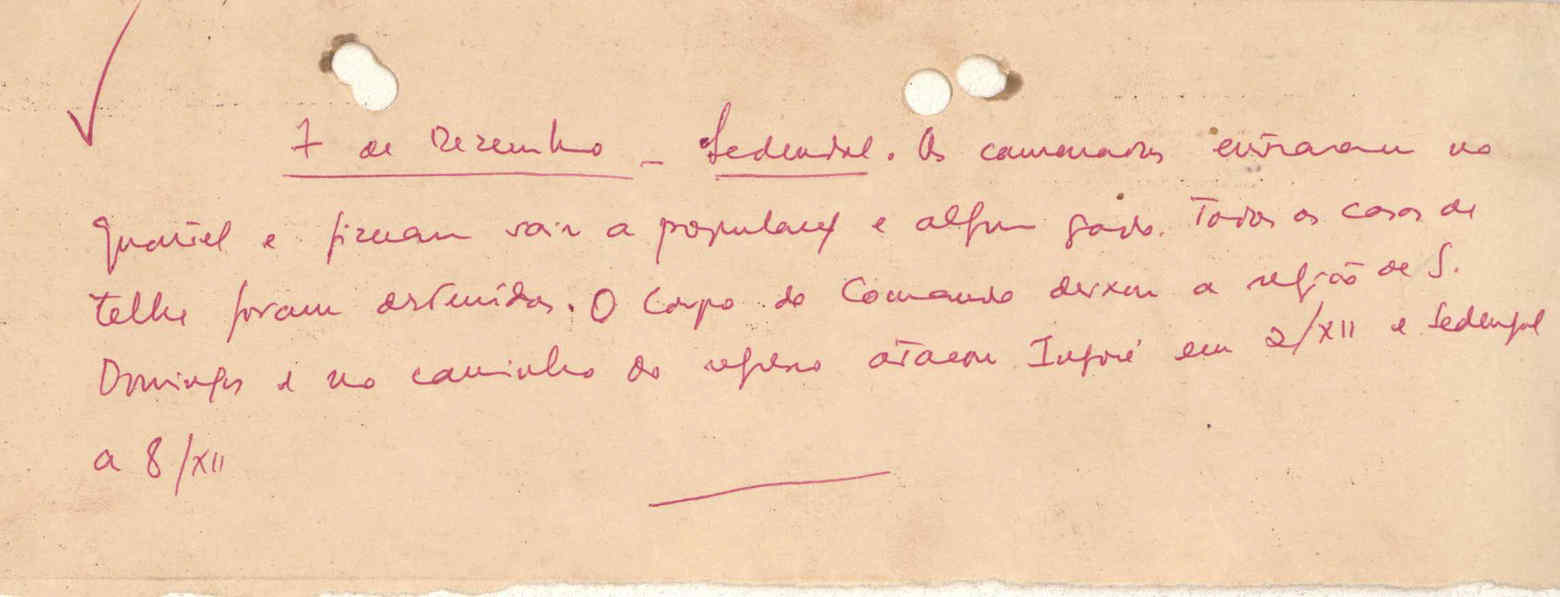 7 de Dezembro - Sedengal. Os camaradas entraram no
quartel e fizeram sair a populaç e algum gado. Todas as casas de
telha foram destruidas. O Corpo do Comando deixou a região de S.
Domingos e no caminho do regresso atacou Ingoré em 2/XII e Sedengal
a 8/XII